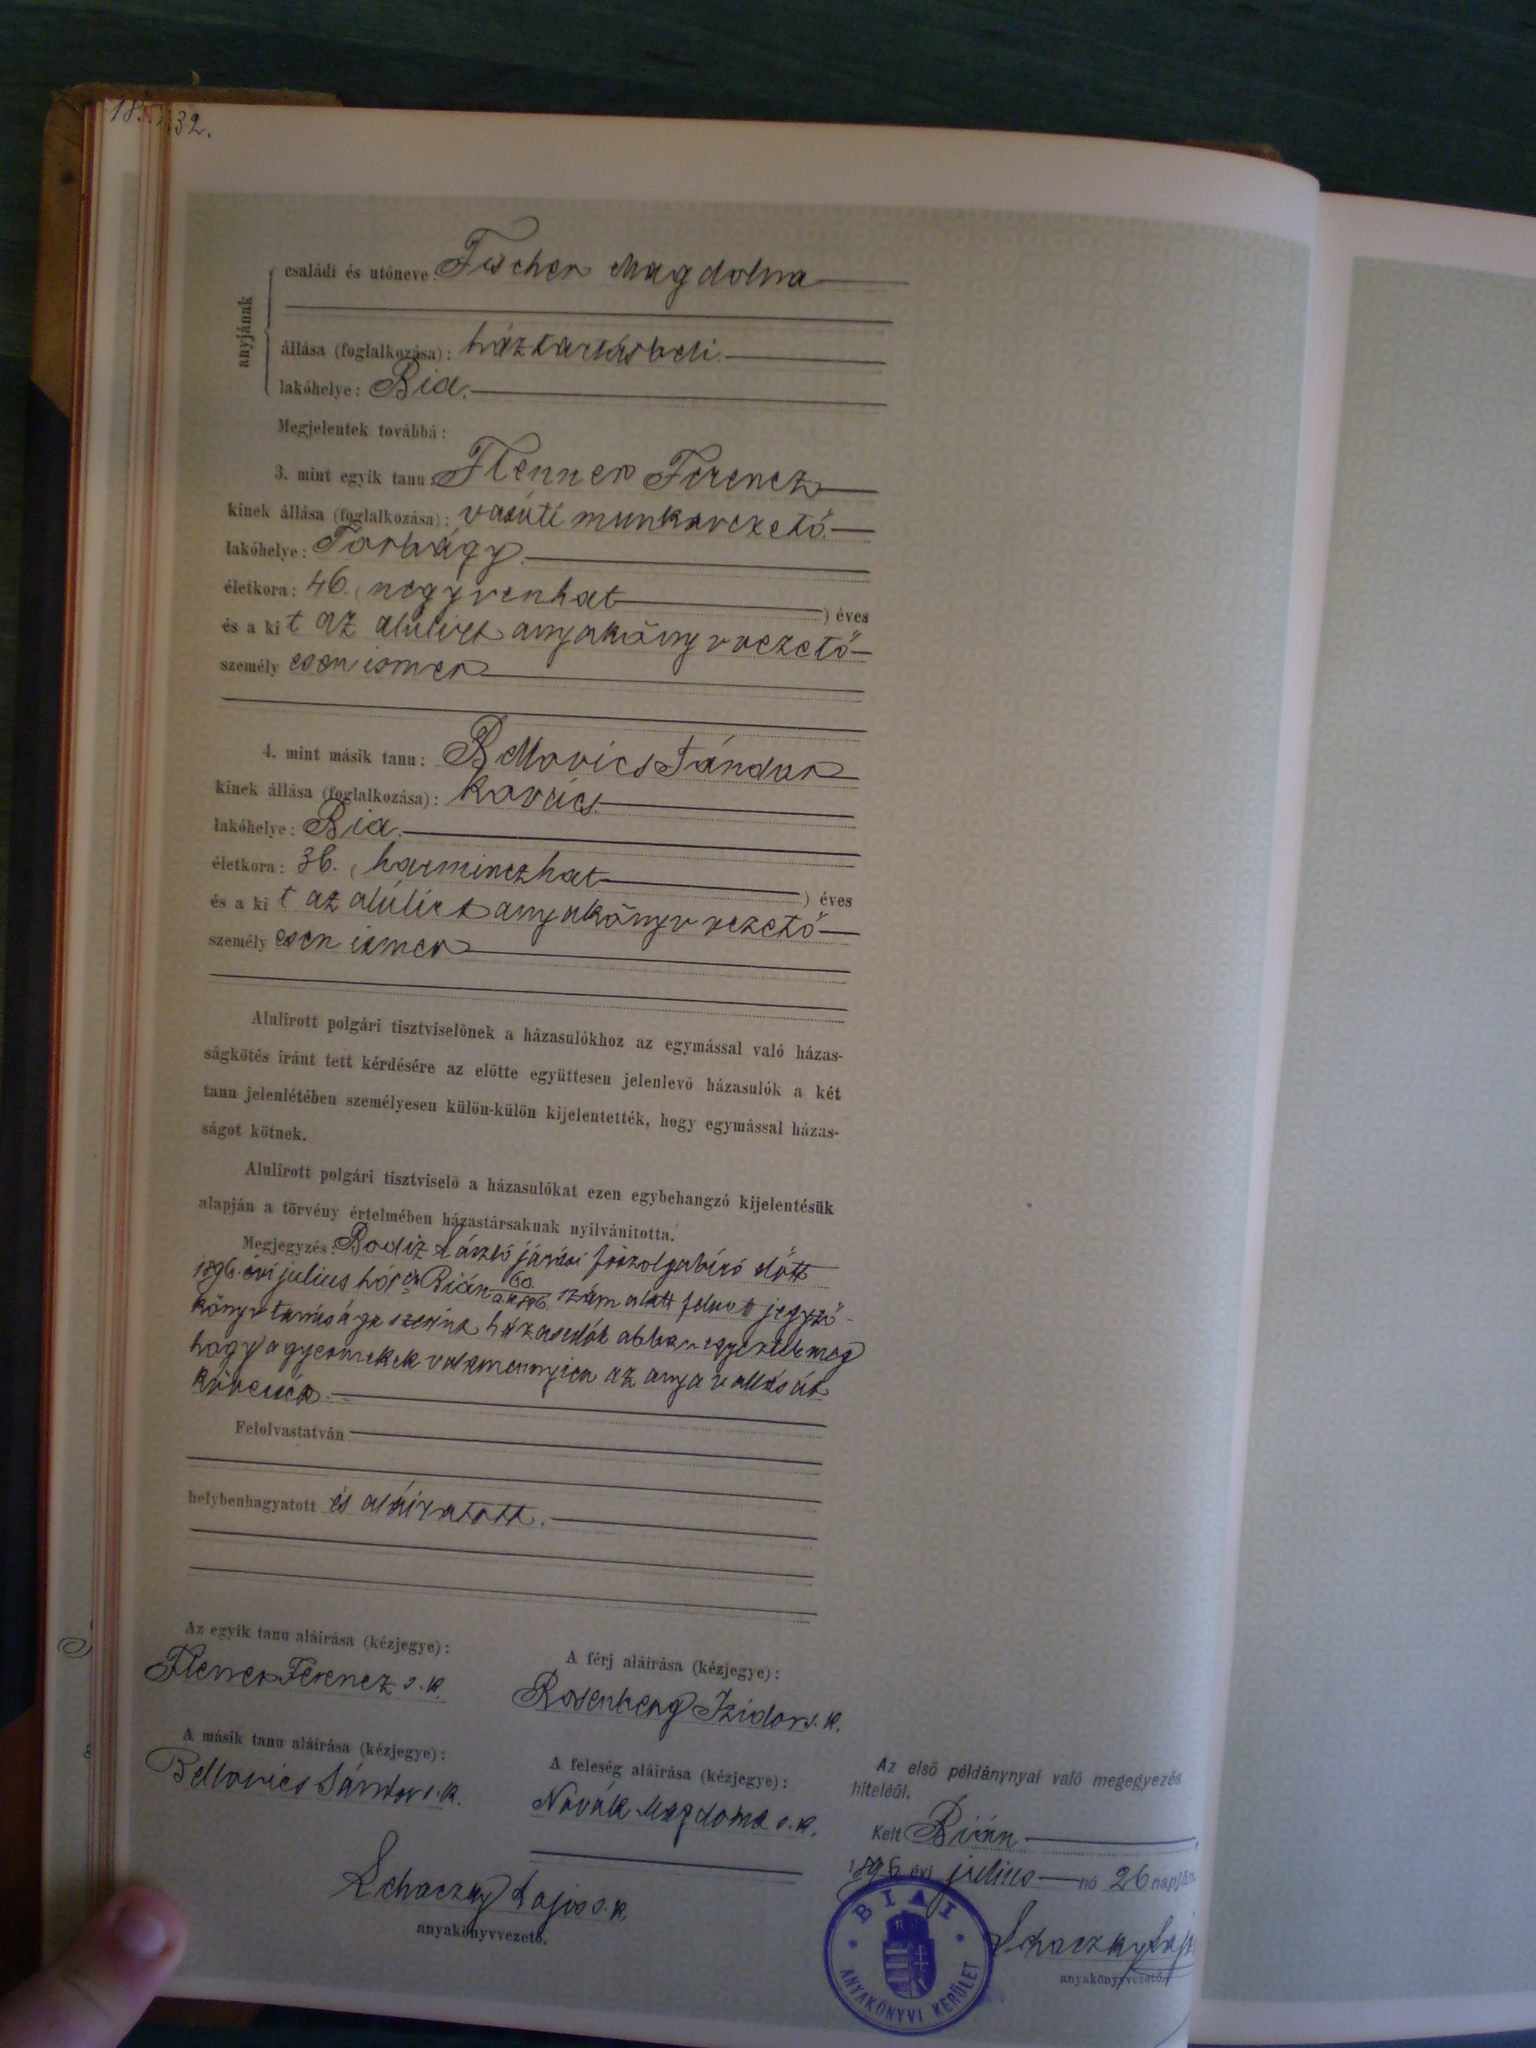 32.
anyjának
családi és utóneve: Fischer Magdolna
állása (foglalkozása): háztartásbeli.
lakóhelye: Bia.
Megjelentek továbbá:
3. mint egyik tanu: Flenner Ferencz
kinek állása (foglalkozása): vasúti munkavezető.
lakóhelye: Torbágy.
életkora: 46. (negyvenhat) éves
és a kit az alúlirt anyakönyvvezető
személyesen ismer
4. mint másik tanu: Bellovics Sándor
kinek állása (foglalkozása): kovács.
lakóhelye: Bia.
életkora: 36. (harminczhat) éves
és a kit az alúlirt anyakönyvvezető
személyesen ismer
Alulirott polgári tisztviselönek a házasulókhoz az egymással való házas-
ságkötés iránt tett kérdésére az elötte együttesen jelenlevö házasulók a két
tanu jelenlétében személyesen külön-külön kijelentették, hogy egymással házas-
ságot kötnek.
Alulirott polgári tisztviselö a házasulókat ezen egybehangzó kijelentésük
alapján a törvény értelmében házastársaknak nyilvánitotta.
Megjegyzés: László járási föszolgabíró előtt
1896. évi julius hó Bián 60 szám alatt felvett jegyző-
könyv tanúsága szerint házasulók abban egyeztek meg
hogy a gyermekek valamennyien az anya vallását
kövessék.
Felolvastatván
helybenhagyatott és aláiratott.
Az egyik tanu aláirása (kézjegye):
Flenner Ferencz s. k.
A férj aláirása (kézjegye):
Rosenberg Izidor s. k.
A másik tanu aláirása (kézjegye):
Bellovics Sándor s. k.
A feleség aláirása (kézjegye):
Novák Magdolna s. k.
Schaczky Lajos s. k.
anyakönyvvezető.
Az első példánynyal való megegyezés
hiteléül.
Kelt Bián
1896 évi julius hó 26 napján
Schaczky
anyakönyvvezető.
BIAI
ANYAKÖNYVI KERÜLET